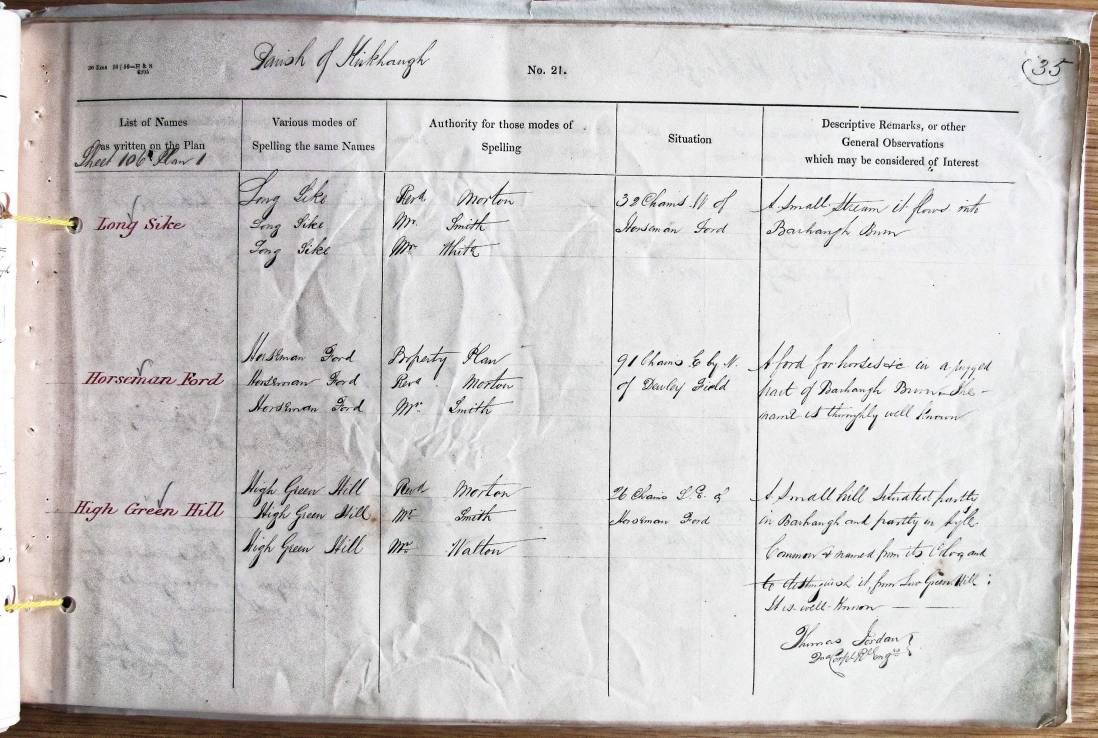 Parish of Kirkhaugh
No. 21.
35
List of Names
as written on the Plan
Various modes of
Spelling the same Names
Authority for those modes of
Spelling
Situation
Descriptive Remarks, or other
General Observations
which may be considered of Interest
Sheet 106 Plan 1
Long Sike
Long Sike
Long Sike
Long Sike
Revd. Morton
Mr. Smith
Mr. White
32 Chains N of
Horseman Ford
A Small Stream it flows into
Barhaugh Burn
Horseman Ford
Horseman Ford
Horseman Ford
Horseman Ford
Property Plan
Revd Morton
Mr. Smith
91 Chains E by N.
of Dewley Field
A ford for horses &c in a
part of Barhaugh Burn. The
name is thoroughly well known
High Green Hill
High Green Hill
High Green Hill
High Green Hill
Revd Morton
Mr Smith
Mr. Walton
26 Chains S.E. of
Horseman Ford
A Small hill situated partly
in Barhaugh and partly in
Common & named from its Color, and
to distinguish it, from Low Green Hill;
It is well Known
Thomas Jordan
Corpl. Rl. Engrs.